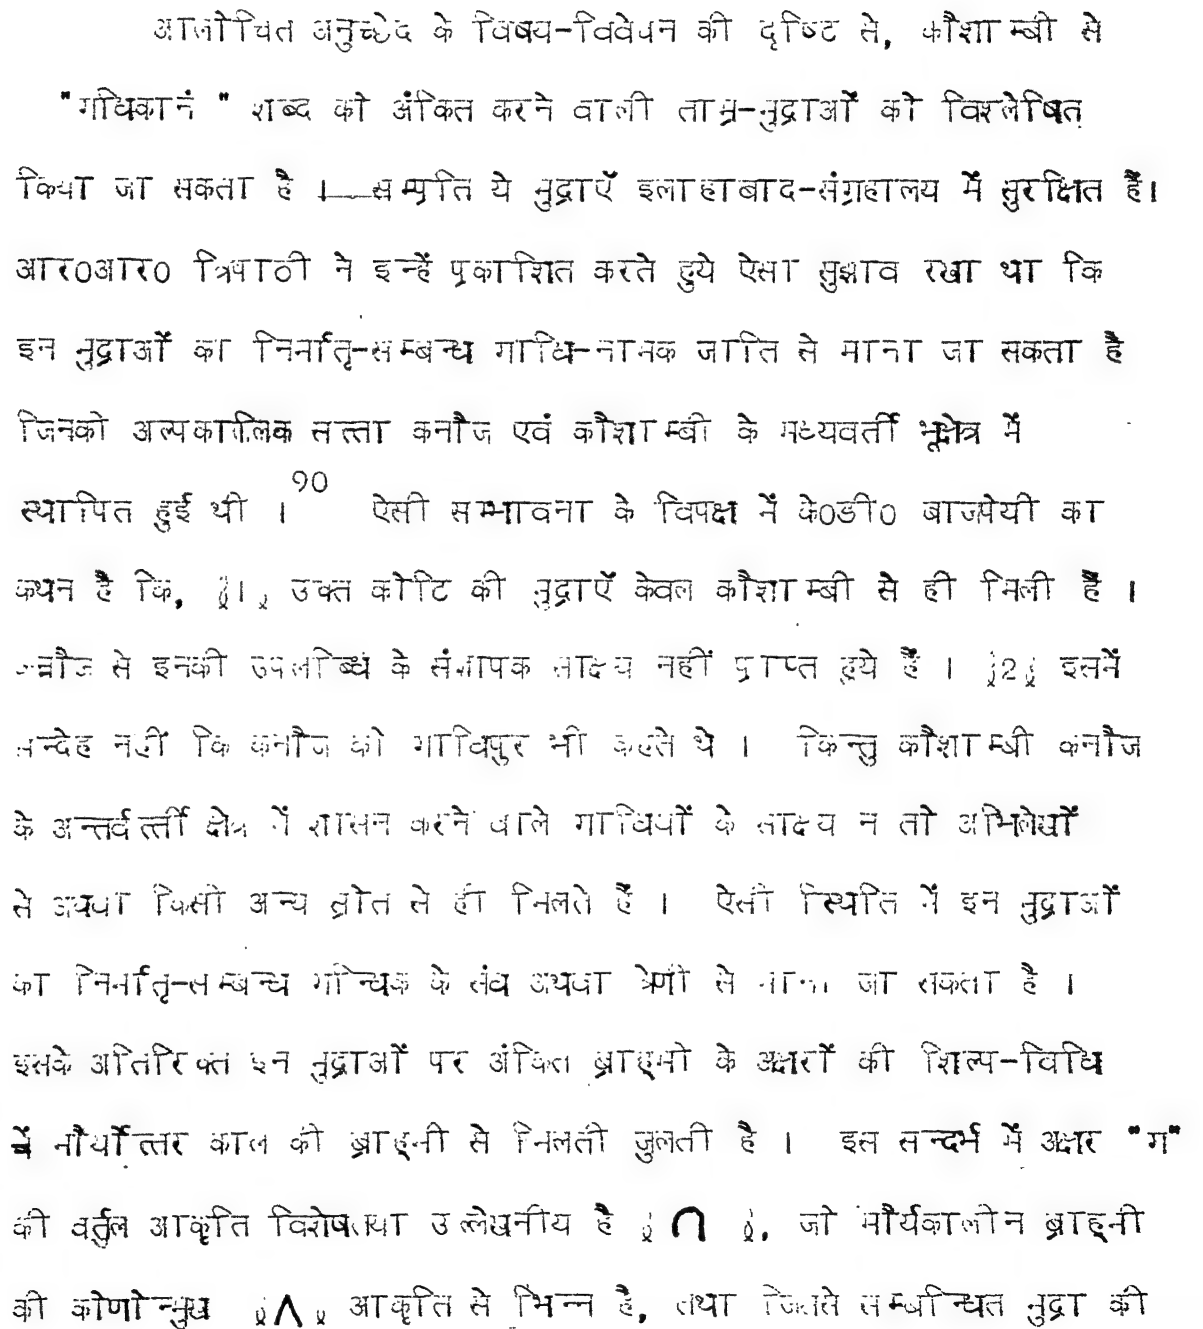 आलोचित अनुच्छेद के विषय-विवेचन की दृष्टि से, कौशाम्बी से
"गधिकानं " शब्द को अंकित करने वाली ताम्र-मुद्राओं को विश्लेषित
किया जा सकता है । सम्प्रति ये मुद्राएँ इलाहाबाद-संग्रहालय में सुरक्षित हैं।
आर0आर0 त्रिपाठी ने इन्हें प्रकाशित करते हुये ऐसा सुझाव रखा था कि
इन मुद्राओं का निर्मातृ-सम्बन्ध गाधि-नामक जाति से माना जा सकता है
जिनको अल्पकालिक सत्ता कनौज एवं कौशाम्बी के मध्यवर्ती भूक्षेत्र में
स्थापित हुई थी ।90 ऐसी सम्भावना के विपक्ष में के0डी0 बाजपेयी का
कथन है कि, ﴾1﴿ उक्त कोटि की मुद्राएँ केवल कौशाम्बी से ही मिली हैं ।
कन्नौज से इनकी उपलब्धि के संज्ञापक साक्ष्य नहीं प्राप्त हुये हैं । ﴾2﴿ इसमें
सन्देह नहीं कि कनौज को गाधिपुर भी कहते थे । किन्तु कौशाम्बी कनौज
के अन्तर्वर्त्ती क्षेत्र में शासन करने वाले गाधियों के साक्ष्य न तो अभिलेखों
से अथवा किसी अन्य स्रोत से ही मिलते हैं । ऐसी स्थिति में इन मुद्राओं
का निर्मातृ-सम्बन्ध गान्धिक के संघ अथवा श्रेणी से माना जा सकता है ।
इसके अतिरिक्त इन मुद्राओं पर अंकित ब्राह्मी के अक्षरों की शिल्प-विधि
में मौर्योत्तर काल की ब्राह्मी से मिलती जुलती है । इस सन्दर्भ में अक्षर "ग"
की वर्तुल आकृति विशेषतया उल्लेखनीय है ﴾ ∩ ﴿, जो मौर्यकालीन ब्राह्मी
की कोणोन्मुख ﴾Λ﴿ आकृति से भिन्न है, तथा जिससे सम्बन्धित मुद्रा की